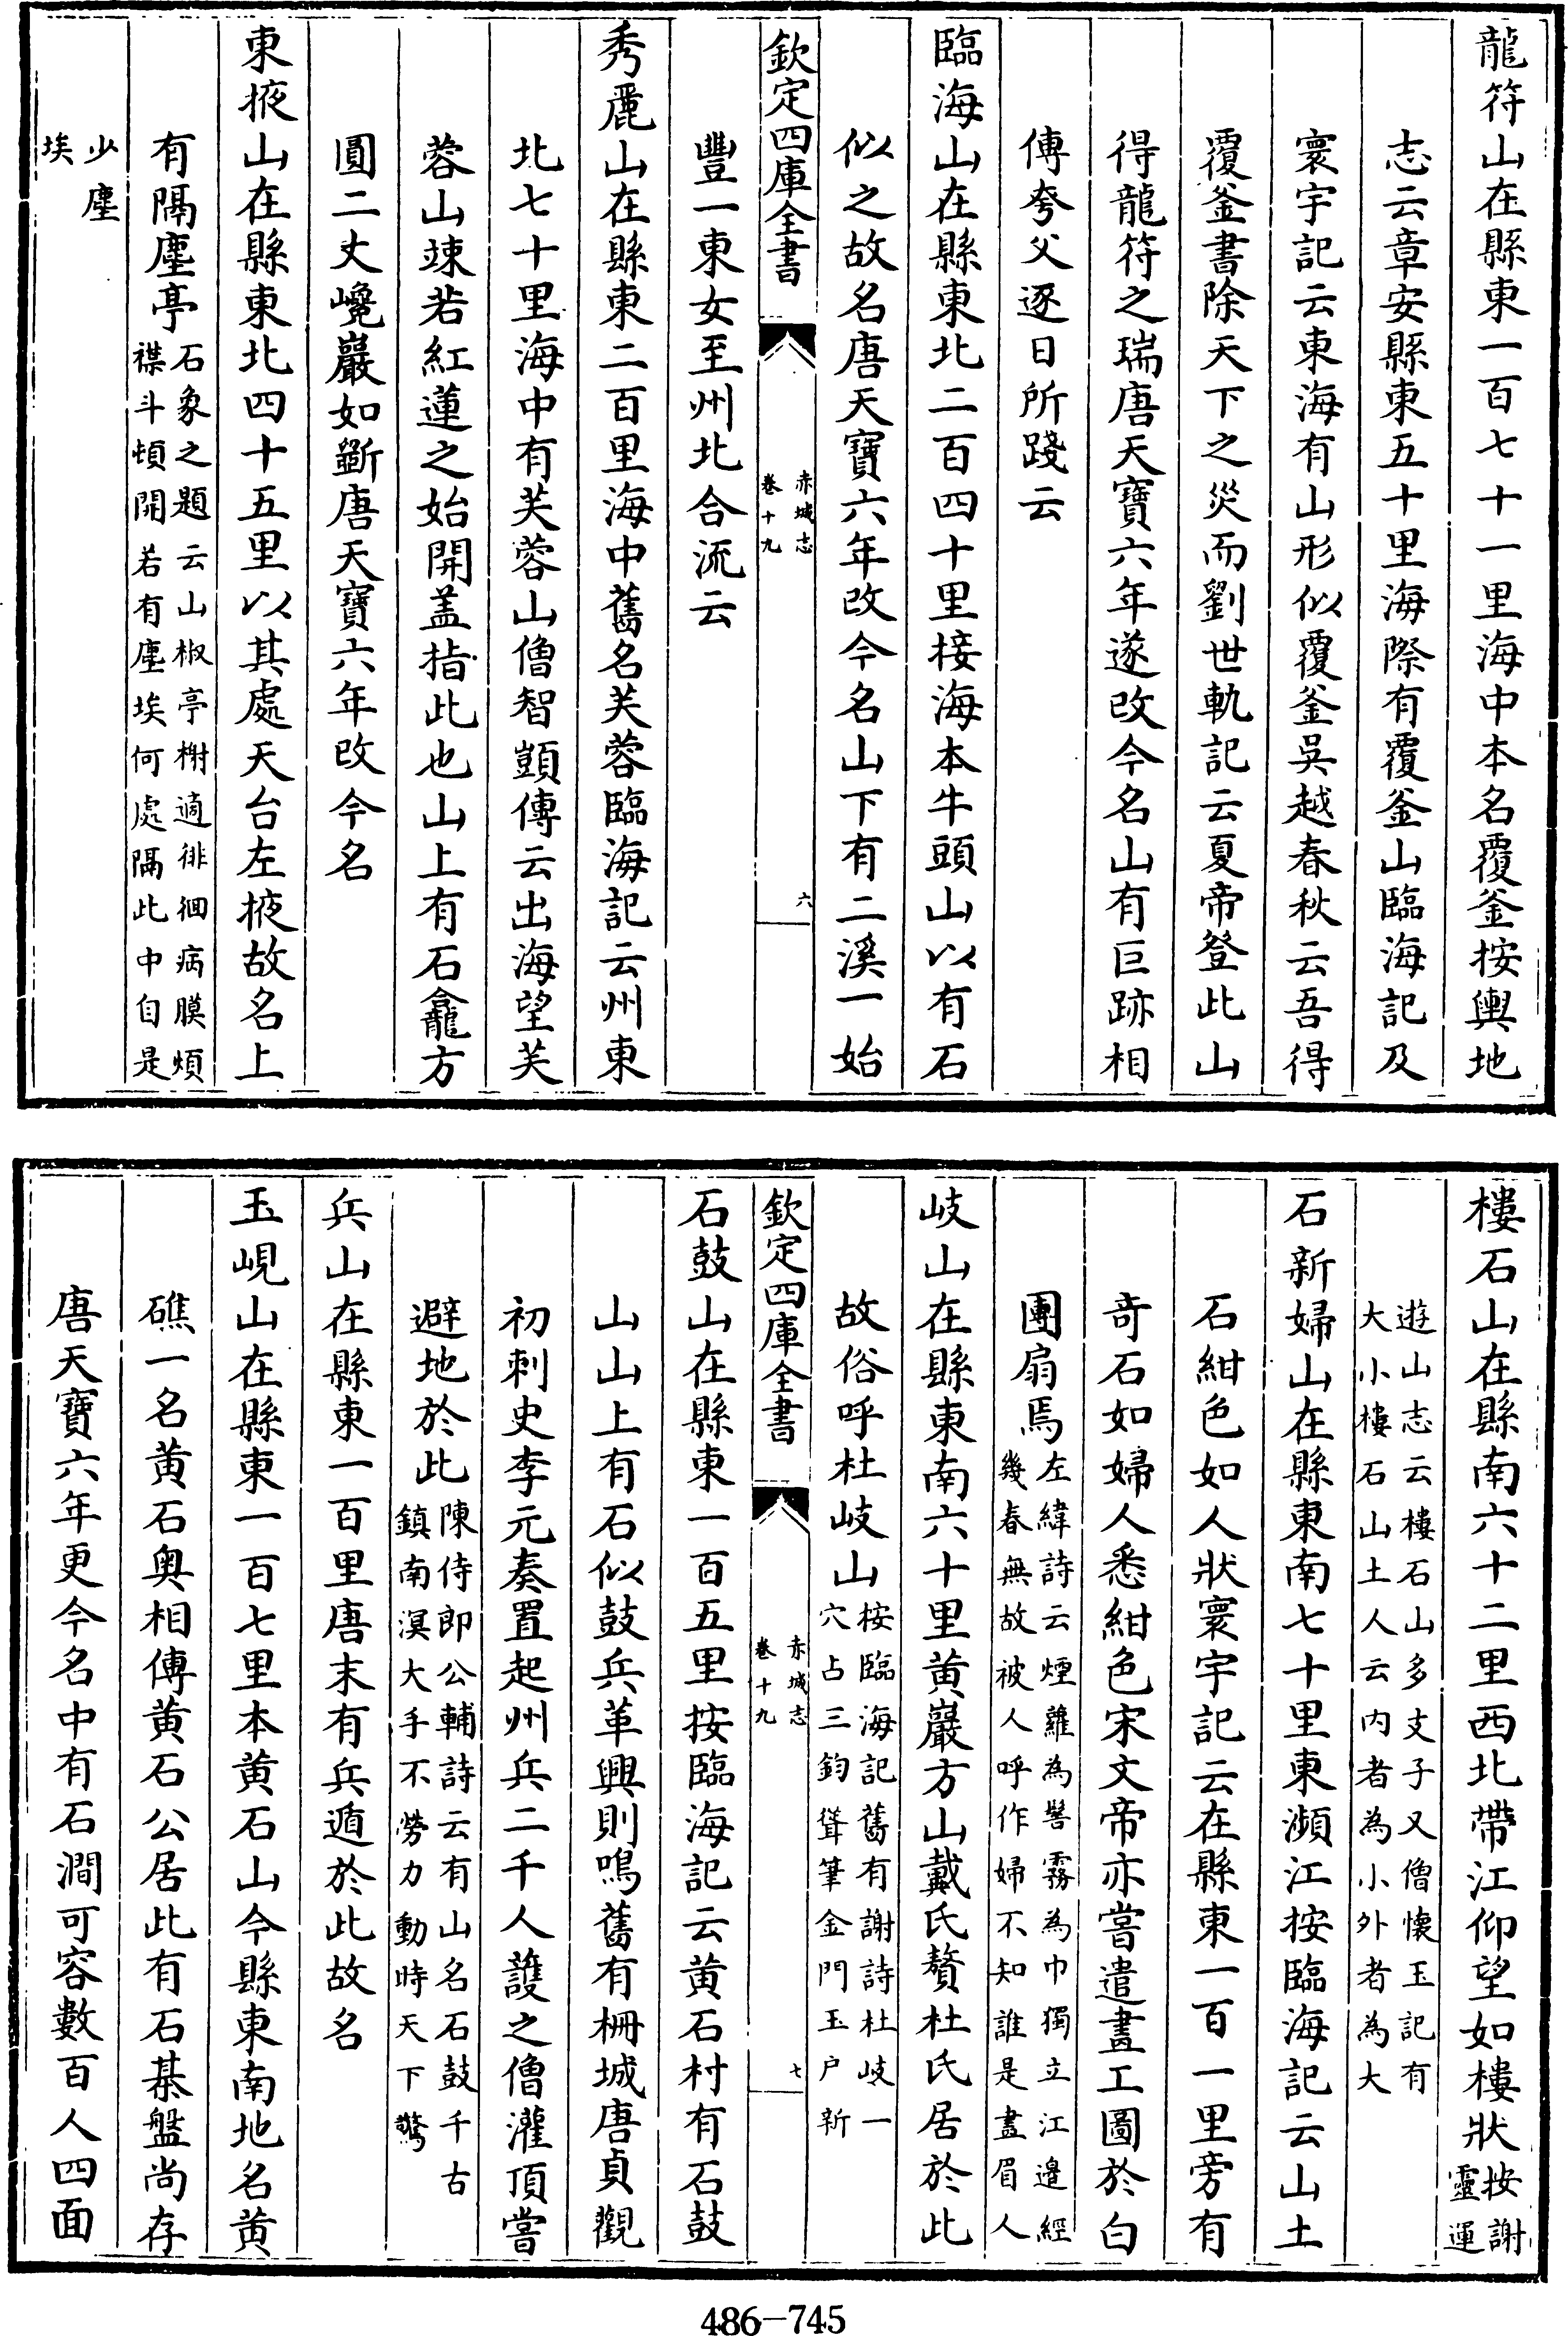 龍符山在縣東一百七十一里海中本名覆釜按輿地
志云章安縣東五十里海際有覆釜山臨海記及
寰宇記云東海有山形似覆釜吳越春秋云吾得
覆釜書除天下之災而劉世軌記云夏帝登此山
得龍符之瑞唐天寶六年遂改今名山有巨跡相
傳夸父逐日所踐云
臨海山在縣東北二百四十里接海本牛頭山以有石
似之故名唐天寶六年改今名山下有二溪一始
欽定四庫全書
赤城志
卷十九
六
豐一東女至州北合流云
秀麗山在縣東二百里海中舊名芙蓉臨海記云州東
北七十里海中有芙蓉山僧智顗傳云出海望芙
蓉山竦若紅蓮之始開盖指此也山上有石龕方
圓二丈巉巖如斷唐天寶六年改今名
東掖山在縣東北四十五里以其處天台左掖故名上
有隔塵亭
石象之題云山椒亭榭適徘徊病膜煩
襟斗頓開若有塵埃何處隔此中自是
少塵
埃
樓石山在縣南六十二里西北帶江仰望如樓狀
按謝
靈運
遊山志云樓石山多支子又僧懷玉記有
大小樓石山土人云内者為小外者為大
石新婦山在縣東南七十里東瀕江按臨海記云山土
石紺色如人狀寰宇記云在縣東一百一里旁有
奇石如婦人悉紺色宋文帝亦嘗遣畫工圖於白
團扇焉
左緯詩云煙蘿為髻霧為巾獨立江邉經
幾春無故被人呼作婦不知誰是畫眉人
岐山在縣東南六十里黄巖方山戴氏贅杜氏居於此
故俗呼杜岐山
按臨海記舊有謝詩杜岐一
穴占三鈞聳筆金門玉户新
欽定四庫全書
赤城志
卷十九
七
石鼓山在縣東一百五里按臨海記云黄石村有石鼓
山山上有石似鼓兵革興則鳴舊有柵城唐貞觀
初刺史李元奏置起州兵二千人護之僧灌頂嘗
避地於此
陳侍郎公輔詩云有山名石鼓千古
鎮南溟大手不勞力動時天下驚
兵山在縣東一百里唐末有兵遁於此故名
玉峴山在縣東一百七里本黄石山今縣東南地名黄
礁一名黄石奥相傳黄石公居此有石棊盤尚存
唐天寶六年更今名中有石澗可容數百人四面
486-745